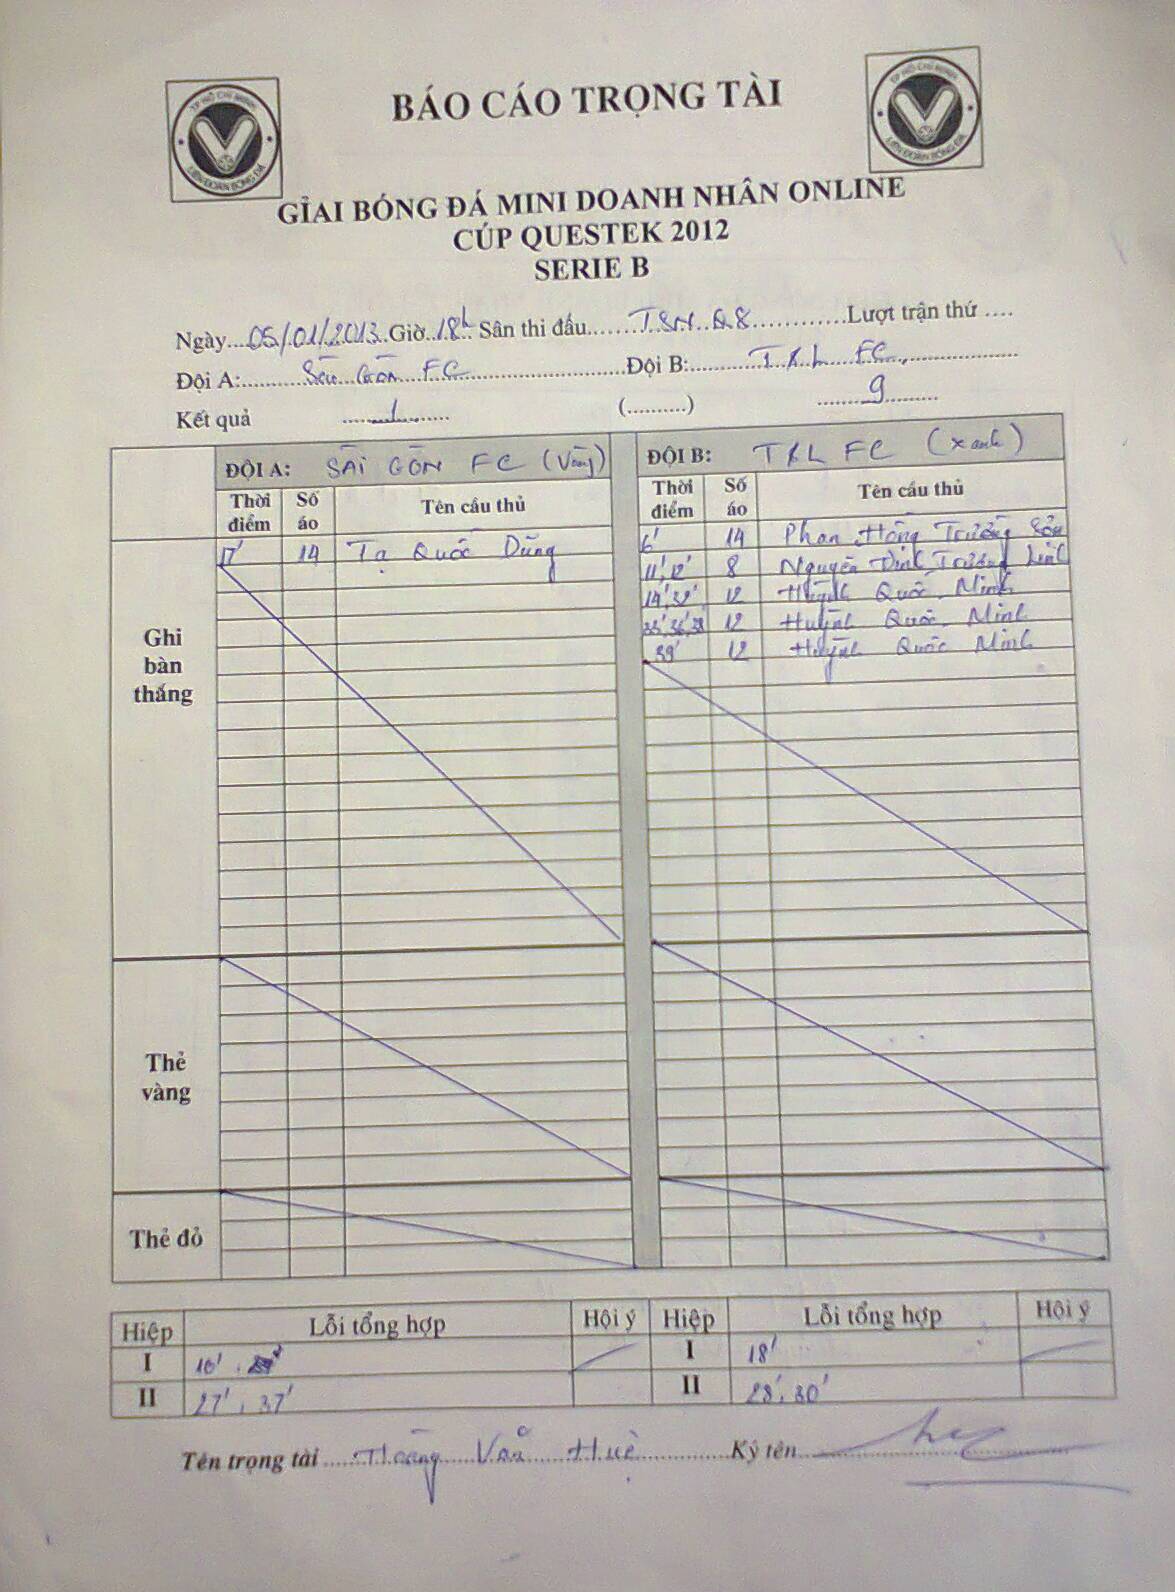 TP HỒ CHÍ MINH
LIÊN ĐOÀN BÓNG ĐÁ
BÁO CÁO TRỌNG TÀI
TP HỒ CHÍ MINH
LIÊN ĐOÀN BÓNG ĐÁ
GIẢI BÓNG ĐÁ MINI DOANH NHÂN ONLINE
CÚP QUESTEK 2012
SERIE B
Ngày....05/01/2013.Giờ.18h. Sân thi đấu......TSN Q8............Lượt trận thứ ....
Đội A:.........Sài Gòn FC.........................Đội B:.........TKL FC..................
Kết quả ......1....... (..........) .......9.........
ĐỘI A: SÀI GÒN FC (Vàng) ĐỘI B: TKL FC (xanh)
Thời điểm Số áo Tên cầu thủ Thời điểm Số áo Tên cầu thủ
Ghi bàn thắng
17' 14 Tạ Quốc Dũng 6' 14 Phan Hồng Trường Sơn
11', 12' 8 Nguyễn Đình Trường Linh
14', 32' 12 Huỳnh Quốc Minh
35', 36', 38' 12 Huỳnh Quốc Minh
39' 12 Huỳnh Quốc Minh
Thẻ vàng
Thẻ đỏ
Hiệp Lỗi tổng hợp Hội ý Hiệp Lỗi tổng hợp Hội ý
I 10' I 18'
II 27', 37' II 28', 30'
Tên trọng tài ......Hoàng Văn Huệ..............Ký tên